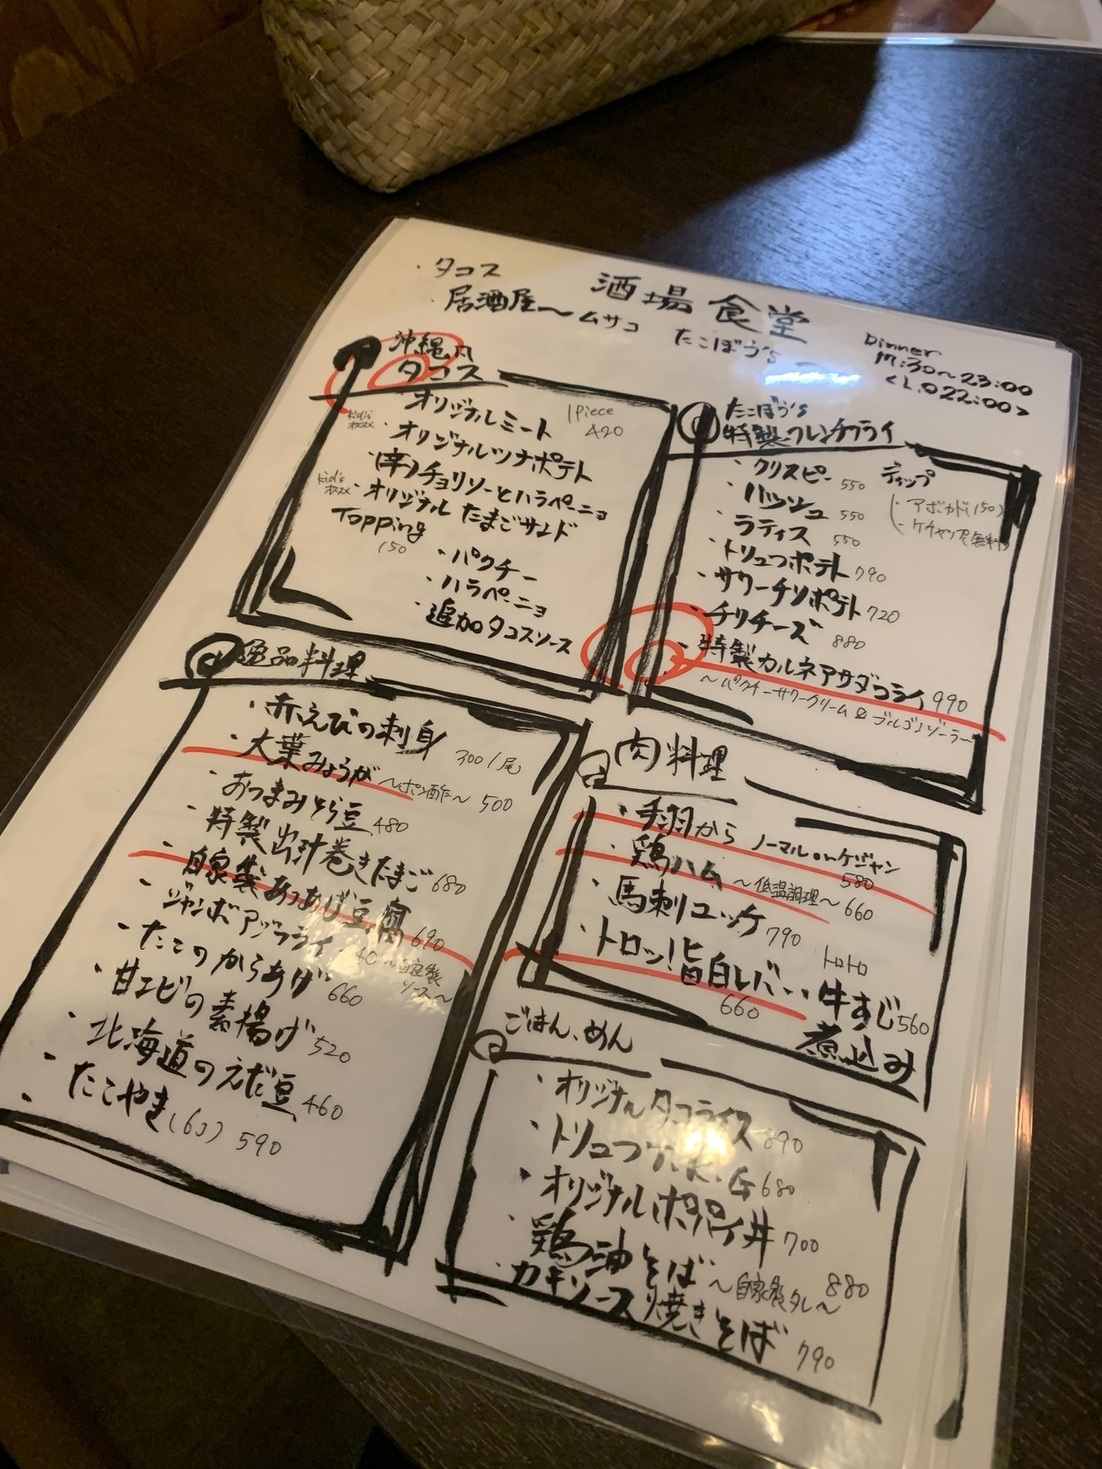 ・タコス
・居酒屋〜ムサコ
酒場食堂
たこぼう's
Dinner
17:30〜23:00
<L.O22:00>
沖縄風
タコス
・オリジナルミート
1Piece
420
kid's
オススメ
・オリジナルツナポテト
・(辛)チョリソーとハラペーニョ
kid's
オススメ
・オリジナルたまごサンド
Topping
150
・パクチー
・ハラペーニョ
・追加タコスソース
たこぼう's
特製フレンチフライ
・クリスピー 550
・ハッシュ 550
・ラティス 550
・トリュフポテト 790
・サワーチリポテト 720
・チリチーズ 880
・特製カルネアサダフライ 990
〜パクチーサワークリーム&ゴルゴンゾーラ〜
ディップ
・アボカド(150)
・ケチャップ(無料)
逸品料理
・赤えびの刺身 300/尾
・大葉みょうが〜ポン酢〜 500
・おつまみそら豆 480
・特製出汁巻きたまご 680
・自家製あつあげ豆腐 690
・ジャンボアジフライ
〜自家製
ソース〜
・たこのからあげ 660
・甘エビの素揚げ 520
・北海道のえだ豆 460
・たこやき(6コ) 590
肉料理
・手羽から ノーマルorケジャン
580
・鶏ハム〜低温調理〜 660
・馬刺ユッケ 790
・トロッ!旨白レバー
660
トロトロ
牛すじ 560
煮込み
ごはん、めん
・オリジナルタコライス 890
・トリュフT.K.G 680
・オリジナルポパイ丼 700
・鶏油そば〜自家製タレ〜 880
・カキソース焼きそば 790